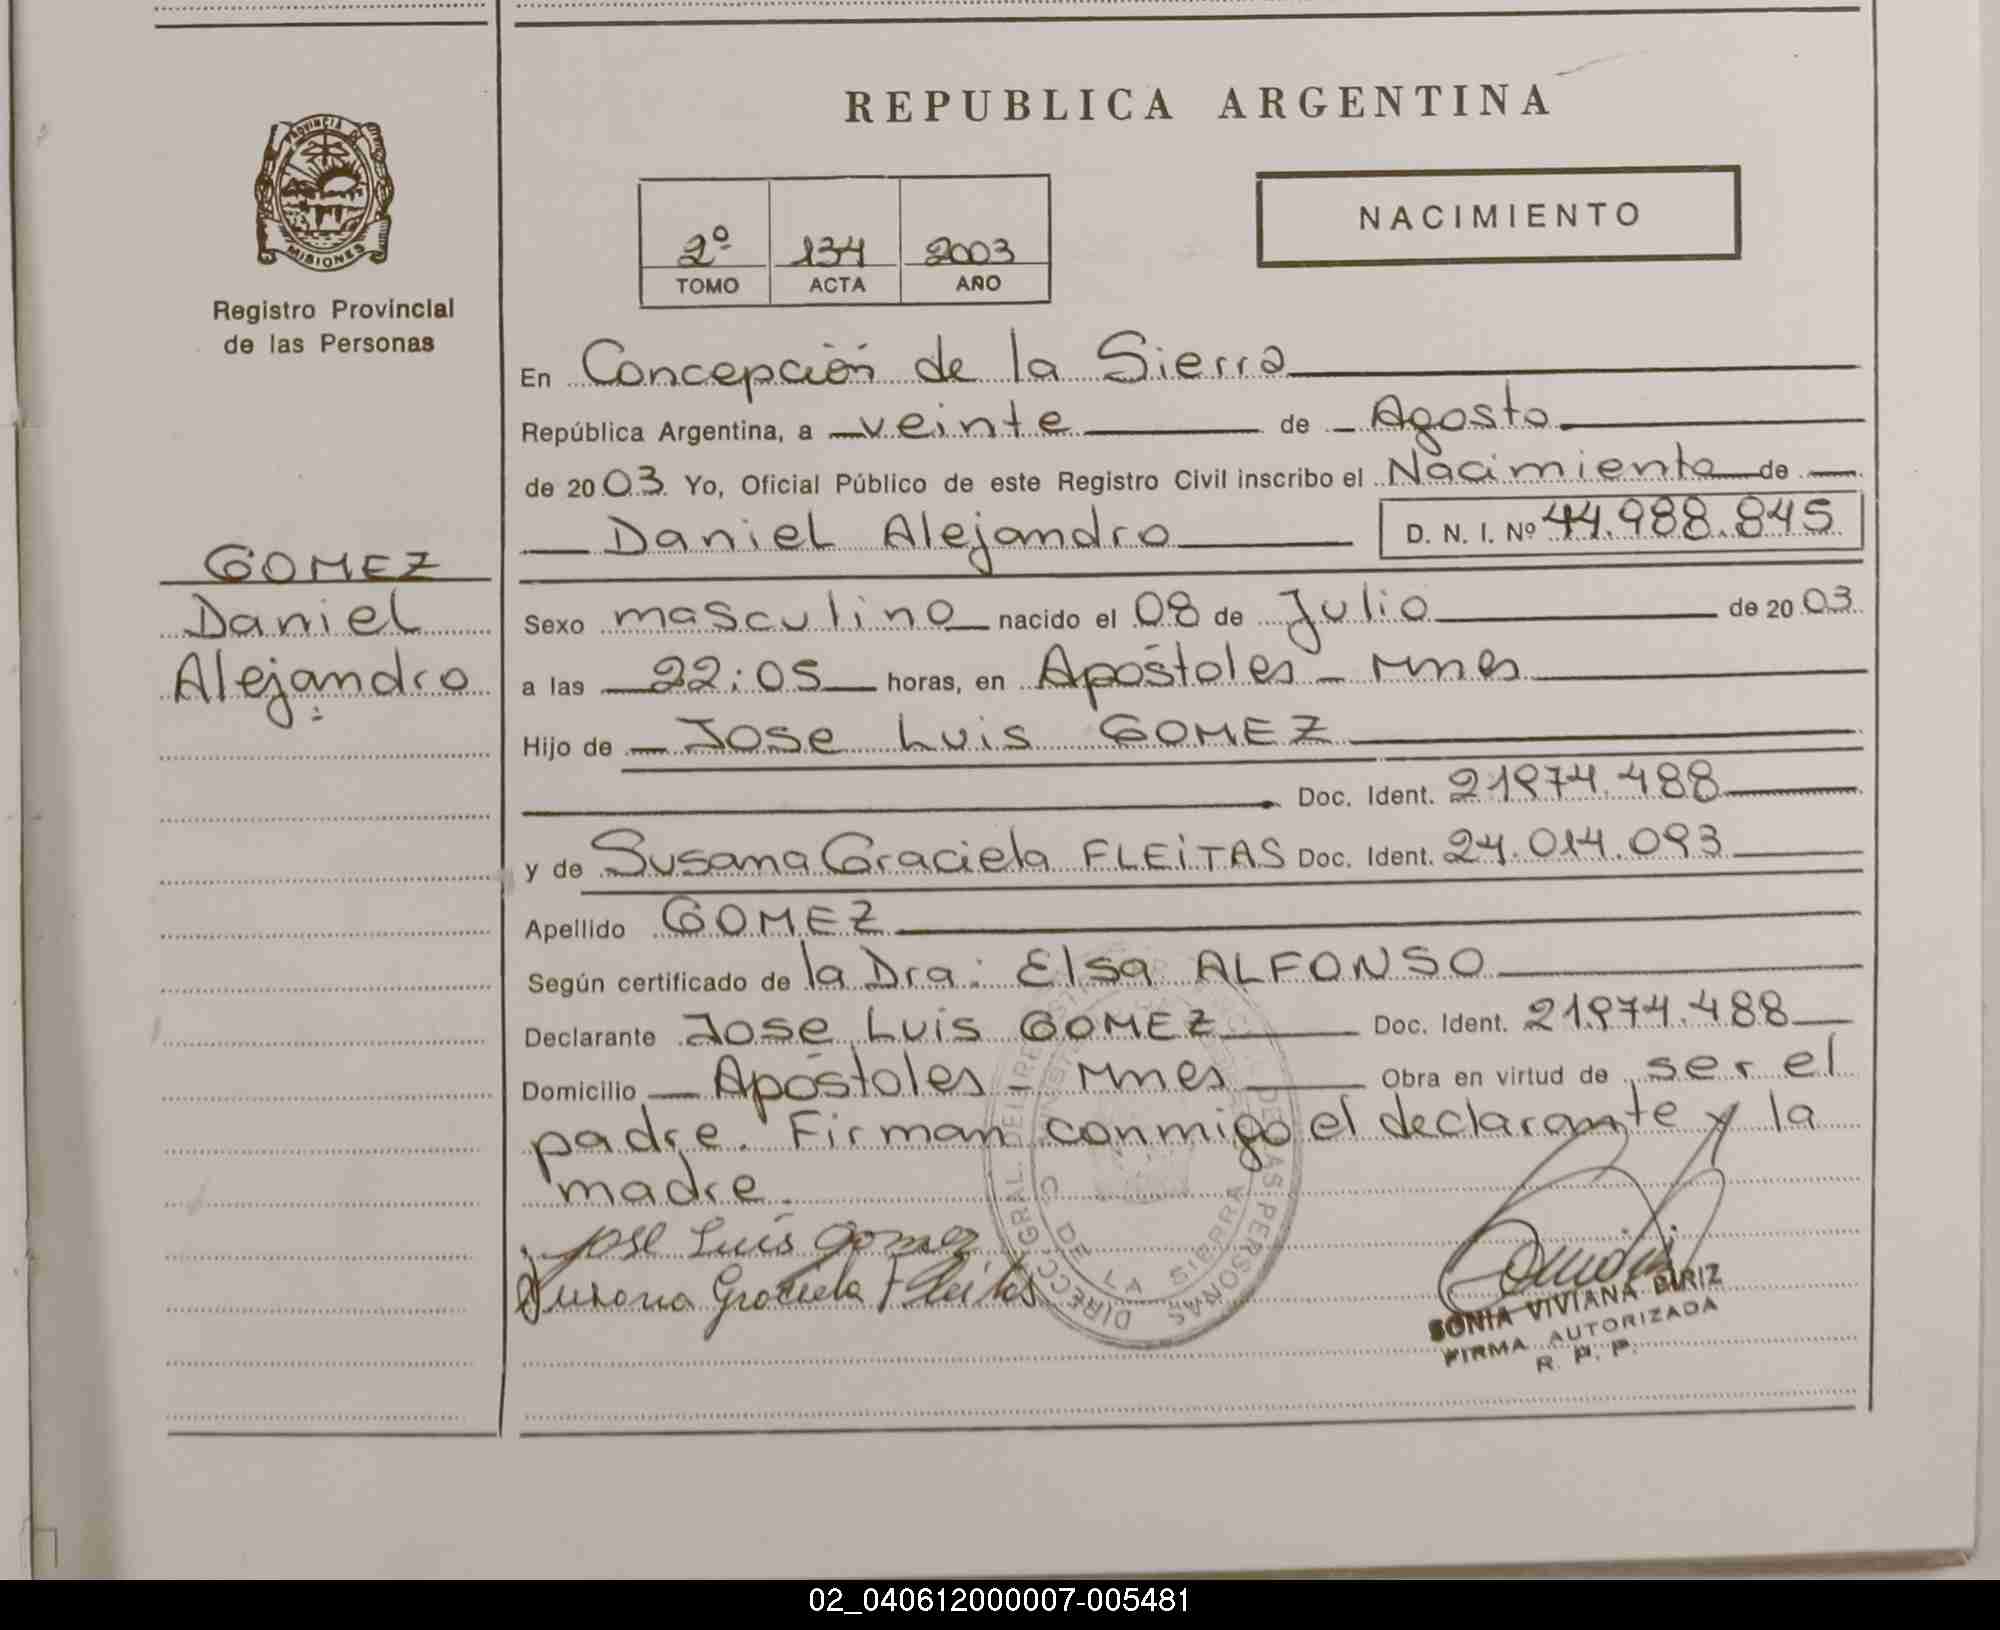 REPUBLICA ARGENTINA
PROVINCIA DE
MISIONES
Registro Provincial
de las Personas
2º 134 2003
TOMO ACTA AÑO
NACIMIENTO
En Concepción de la Sierra
República Argentina, a veinte de Agosto
de 2003 Yo, Oficial Público de este Registro Civil inscribo el Nacimiento de
Daniel Alejandro D. N. I. Nº 44.988.845
GOMEZ
Daniel
Alejandro
Sexo masculino nacido el 08 de Julio de 2003
a las 22:05 horas, en Apóstoles - Mnes
Hijo de Jose Luis GOMEZ
Doc. Ident. 21974.488
y de Susana Graciela FLEiTAS Doc. Ident. 24.014.093
Apellido GOMEZ
Según certificado de la Dra: Elsa ALFONSO
Declarante Jose Luis GOMEZ Doc. Ident. 21.974.488
Domicilio Apóstoles - Mnes Obra en virtud de ser el
padre. Firman conmigo el declarante y la
madre.
Jose Luis Gomez
Susana Graciela Fleitas
DE LA SIERRA
DE LAS PERSONAS
SONIA VIVIANA PIRIZ
FIRMA AUTORIZADA
R. P. P.
02_040612000007-005481